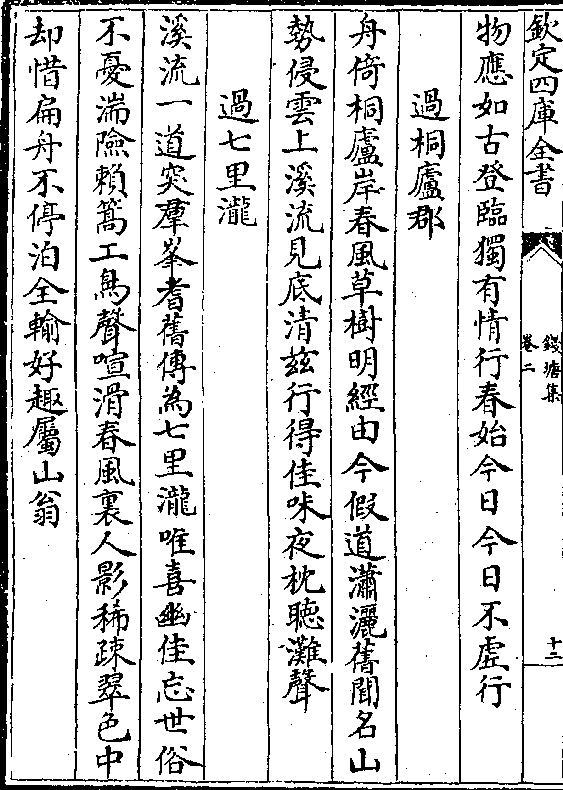 欽定四庫全書
錢塘集
卷二
十二
物應如古登臨獨有情行春始今日今日不虛行
過桐廬郡
舟倚桐廬岸春風草樹明經由今假道瀟灑舊聞名山
勢侵雲上溪流見底清兹行得佳味夜枕聴灘聲
過七里瀧
溪流一道突羣峯耆舊傳為七里瀧唯喜幽佳忘世俗
不憂湍險賴篙工鳥聲喧滑春風裏人影稀疎翠色中
却惜扁舟不停泊全輸好趣屬山翁